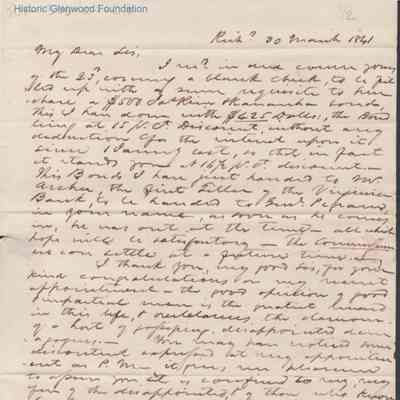 Historic Glenwood Foundation
Richd 30 March 1841
My Dear Sir,
I recd in due course yours
of the 23d covering a blank check, to be fil
led up with a sum requisite to pur
chase a $500 Jas River & Kanawha bond,
this I have done with $425 Dolls, the Bond
being at 15 P. Ct Discount without any
deduction for the interest upon it
since 1 January last, so that in fact
it stands you at 16¼ P. Ct discount —
This Bond I have just handed to Mr
Archer, the first Teller of the Virginia
Bank, to be handed to Genl Pegram,
in your name, as soon as he comes
in, he was out at the time — all which I
hope will be satisfactory — the Commission
we can settle at a future time —
I thank you, my good Sir, for your
kind congratulations on my recent
appointment the good opinion of good
& impartial men is the greatest reward
in this life, & outbalances the clamour
of a host of disappointed dem
agogues. — You may have noticed some
discontent expressed at my appointm
ent as P. M. it gives me pleasure
to assure you it is confined to very, very
few of the disappointed, & of those who know